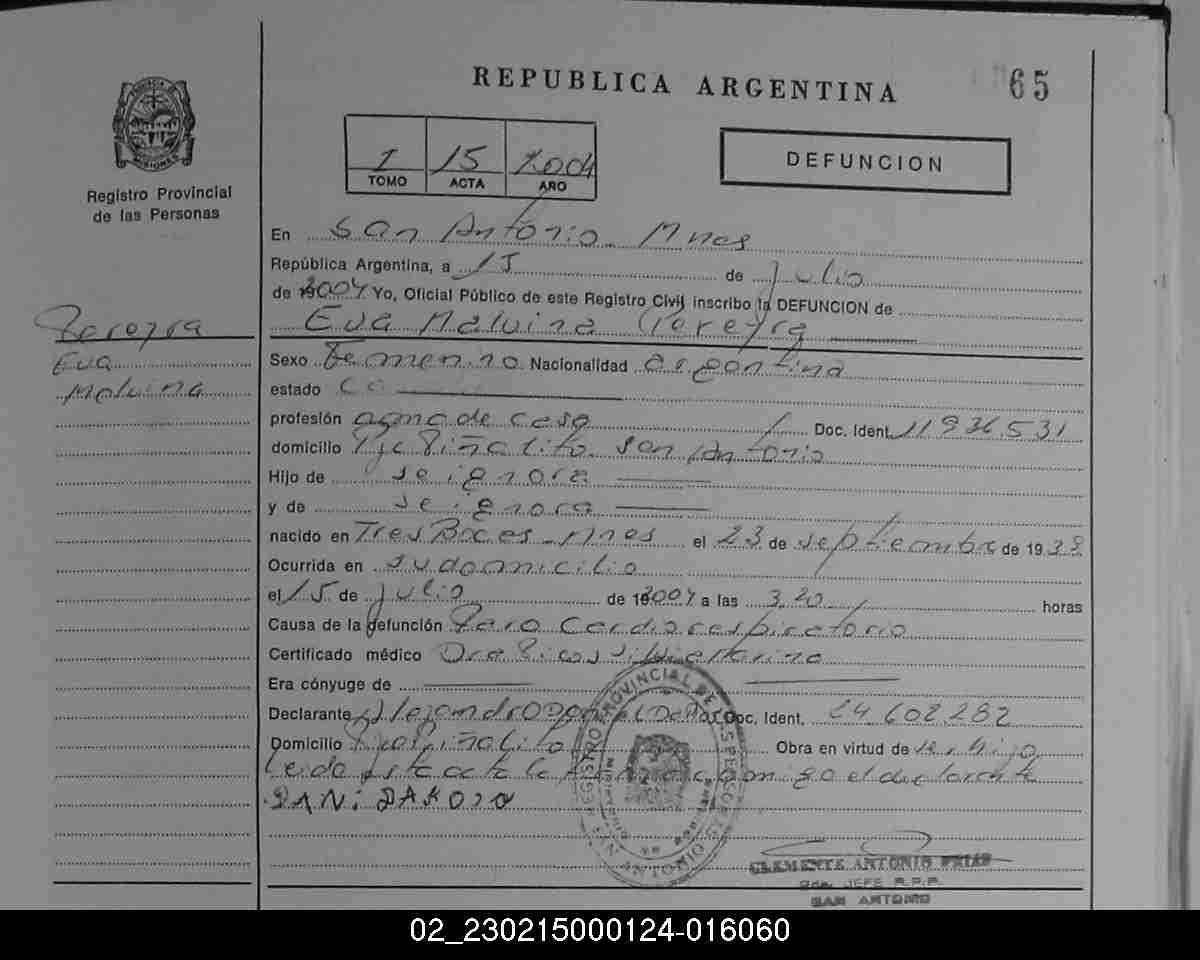 REPUBLICA ARGENTINA
65
PROVINCIA DE MISIONES
Registro Provincial
de las Personas
1 15 2004
TOMO ACTA AÑO
DEFUNCION
En San Antonio Mnes
República Argentina, a 15 de Julio
de 2004 Yo, Oficial Público de este Registro Civil inscribo la DEFUNCION de
Eva Malvina Pereyra
Pereyra
Eva
Malvina
Sexo Femenino Nacionalidad argentina
estado
profesión ama de casa Doc. Ident. 11936531
domicilio Pje Piñalito San Antonio
Hijo de se ignora
y de se ignora
nacido en Tres Boces Mnes el 23 de septiembre de 1938
Ocurrida en su domicilio
el 15 de Julio de 2004 a las 3,20 horas
Causa de la defunción Paro Cardiorespiratorio
Certificado médico Dra
Era cónyuge de
Declarante Alejandro Doc. Ident. 24.602.282
Domicilio Piñalito Obra en virtud de ser hijo
Leida esta acta la conmigo el declarante
REGISTRO PROVINCIAL DE LAS PERSONAS
SAN ANTONIO
MISIONES
CLEMENTE ANTONIO
JEFE R.P.P.
SAN ANTONIO
02_230215000124-016060